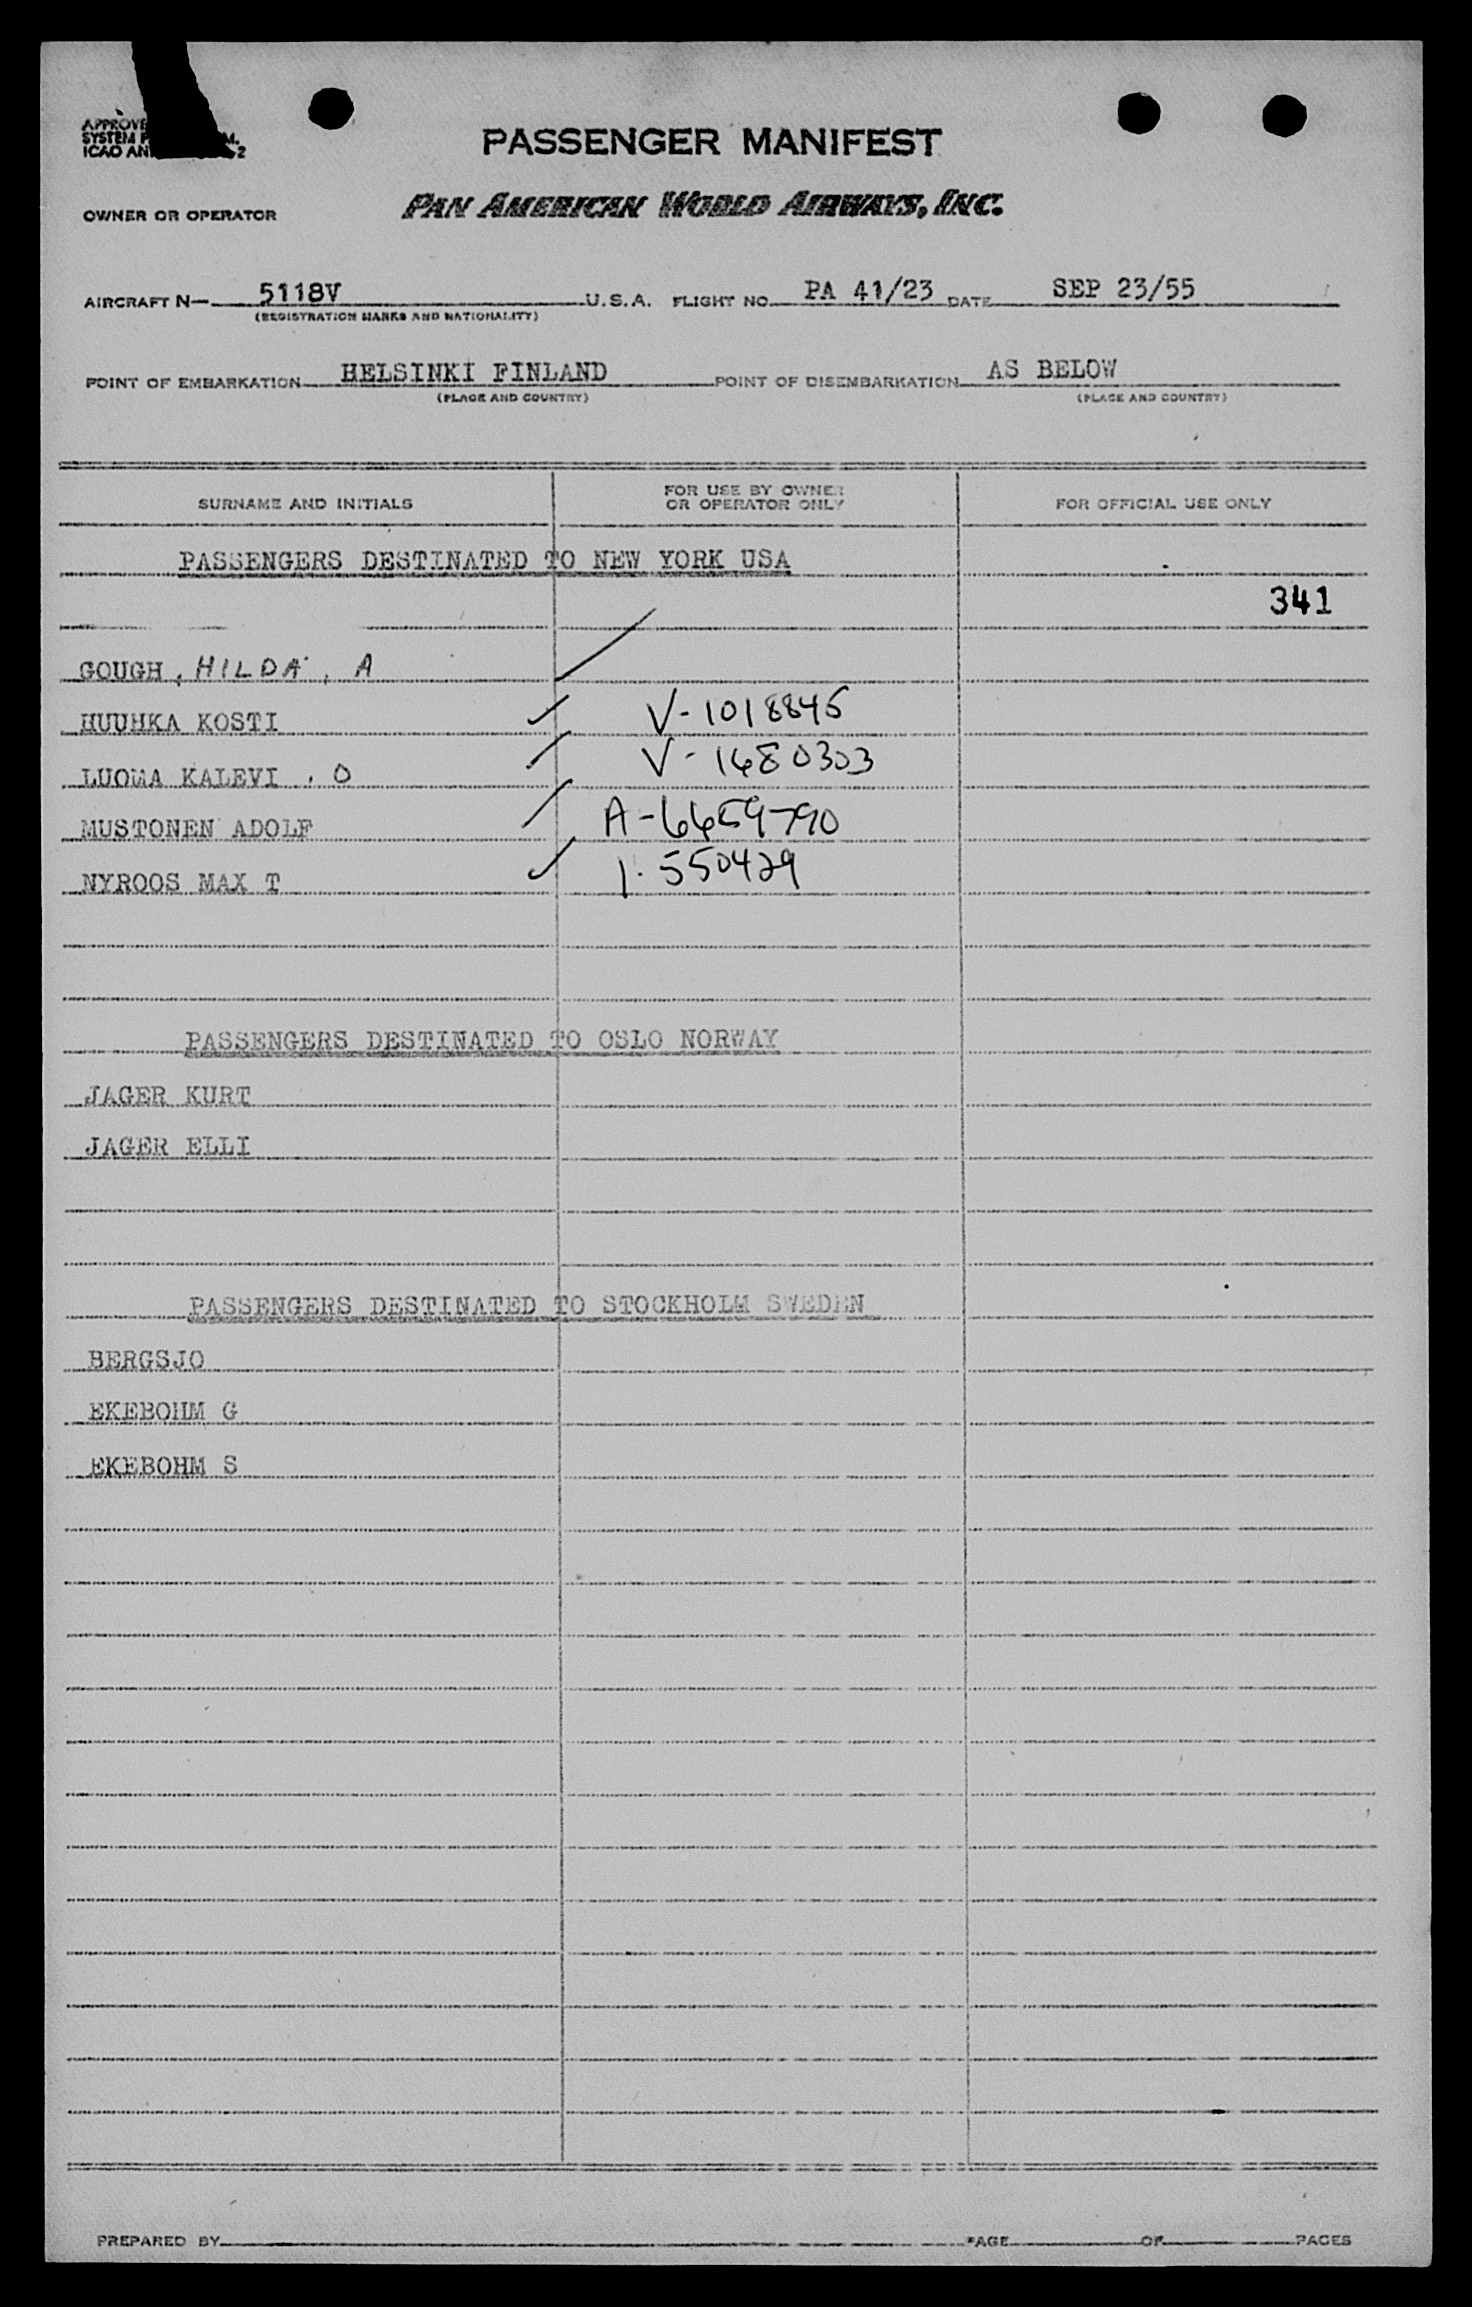 PASSENGER MANIFEST
OWNER OR OPERATOR PAN AMERICAN WORLD AIRWAYS, INC.
AIRCRAFT N— 5118V U.S.A. FLIGHT NO. PA 41/23 DATE SEP 23/55
(REGISTRATION MARKS AND NATIONALITY)
POINT OF EMBARKATION HELSINKI FINLAND POINT OF DISEMBARKATION AS BELOW
(PLACE AND COUNTRY) (PLACE AND COUNTRY)
SURNAME AND INITIALS FOR USE BY OWNER OR OPERATOR ONLY FOR OFFICIAL USE ONLY
PASSENGERS DESTINATED TO NEW YORK USA
341
GOUGH, HILDA, A
HUUHKA KOSTI V-1018845
LUOMA KALEVI . O V-1680303
MUSTONEN ADOLF A-6659790
NYROOS MAX T 1-550429
PASSENGERS DESTINATED TO OSLO NORWAY
JAGER KURT
JAGER ELLI
PASSENGERS DESTINATED TO STOCKHOLM SWEDEN
BERGSJO
EKEBOHM G
EKEBOHM S
PREPARED BY PAGE OF PAGES